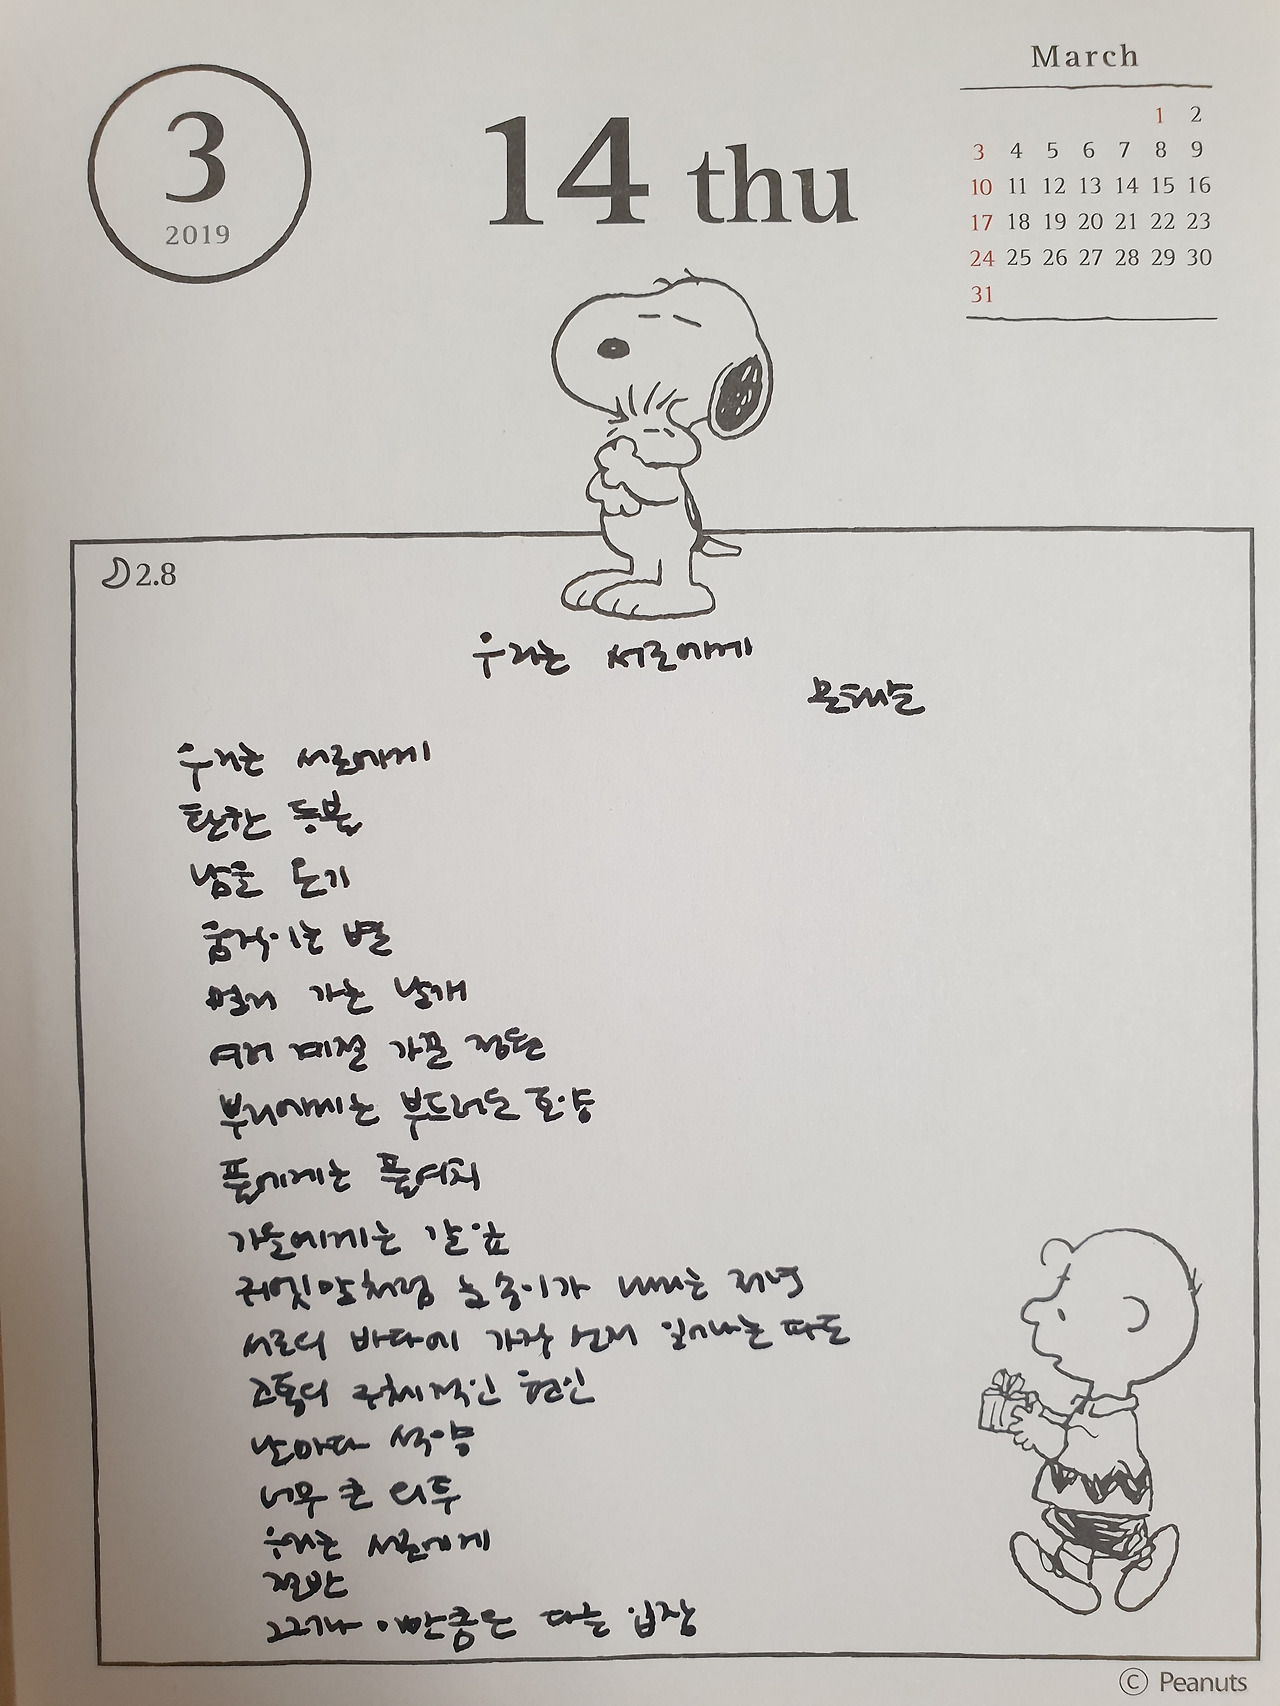 March
3
2019
14 thu
1 2
3 4 5 6 7 8 9
10 11 12 13 14 15 16
17 18 19 20 21 22 23
24 25 26 27 28 29 30
31
2.8
우리는 서로에게
문태준
우리는 서로에게
환한 등불
남을 온기
움직이는 별
멀리 가는 날개
여러 계절 가꾼 정원
뿌리에게는 부드러운 토양
풀에게는 풀여치
가을에게는 갈잎
귀엣말처럼 눈송이가 내리는 저녁
서로의 바다에 가장 먼저 일어나는 파도
고통의 구체적인 원인
날마다 석양
너무 큰 외투
우리는 서로에게
절반
그러나 이만큼은 다른 입장
© Peanuts